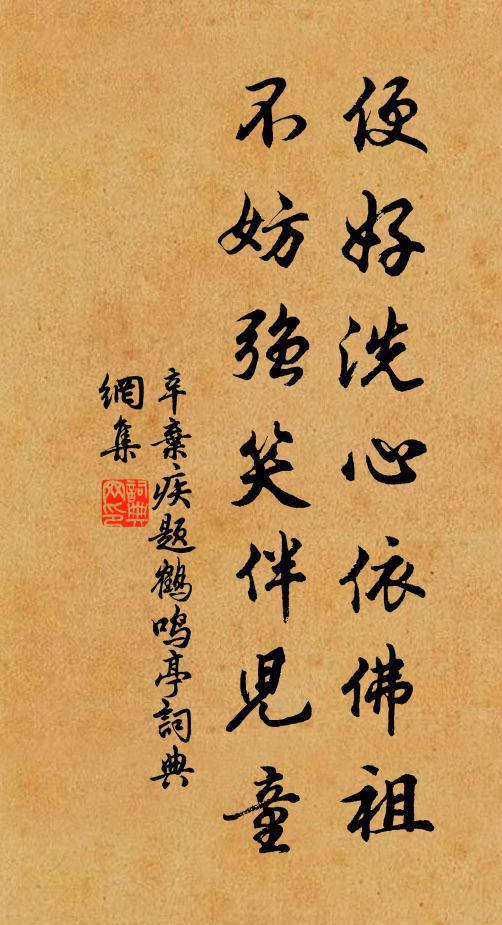 便好洗心依佛祖
不妨強笑伴児童
辛棄疾題鶴鳴亭詞典
網集
詞典網印